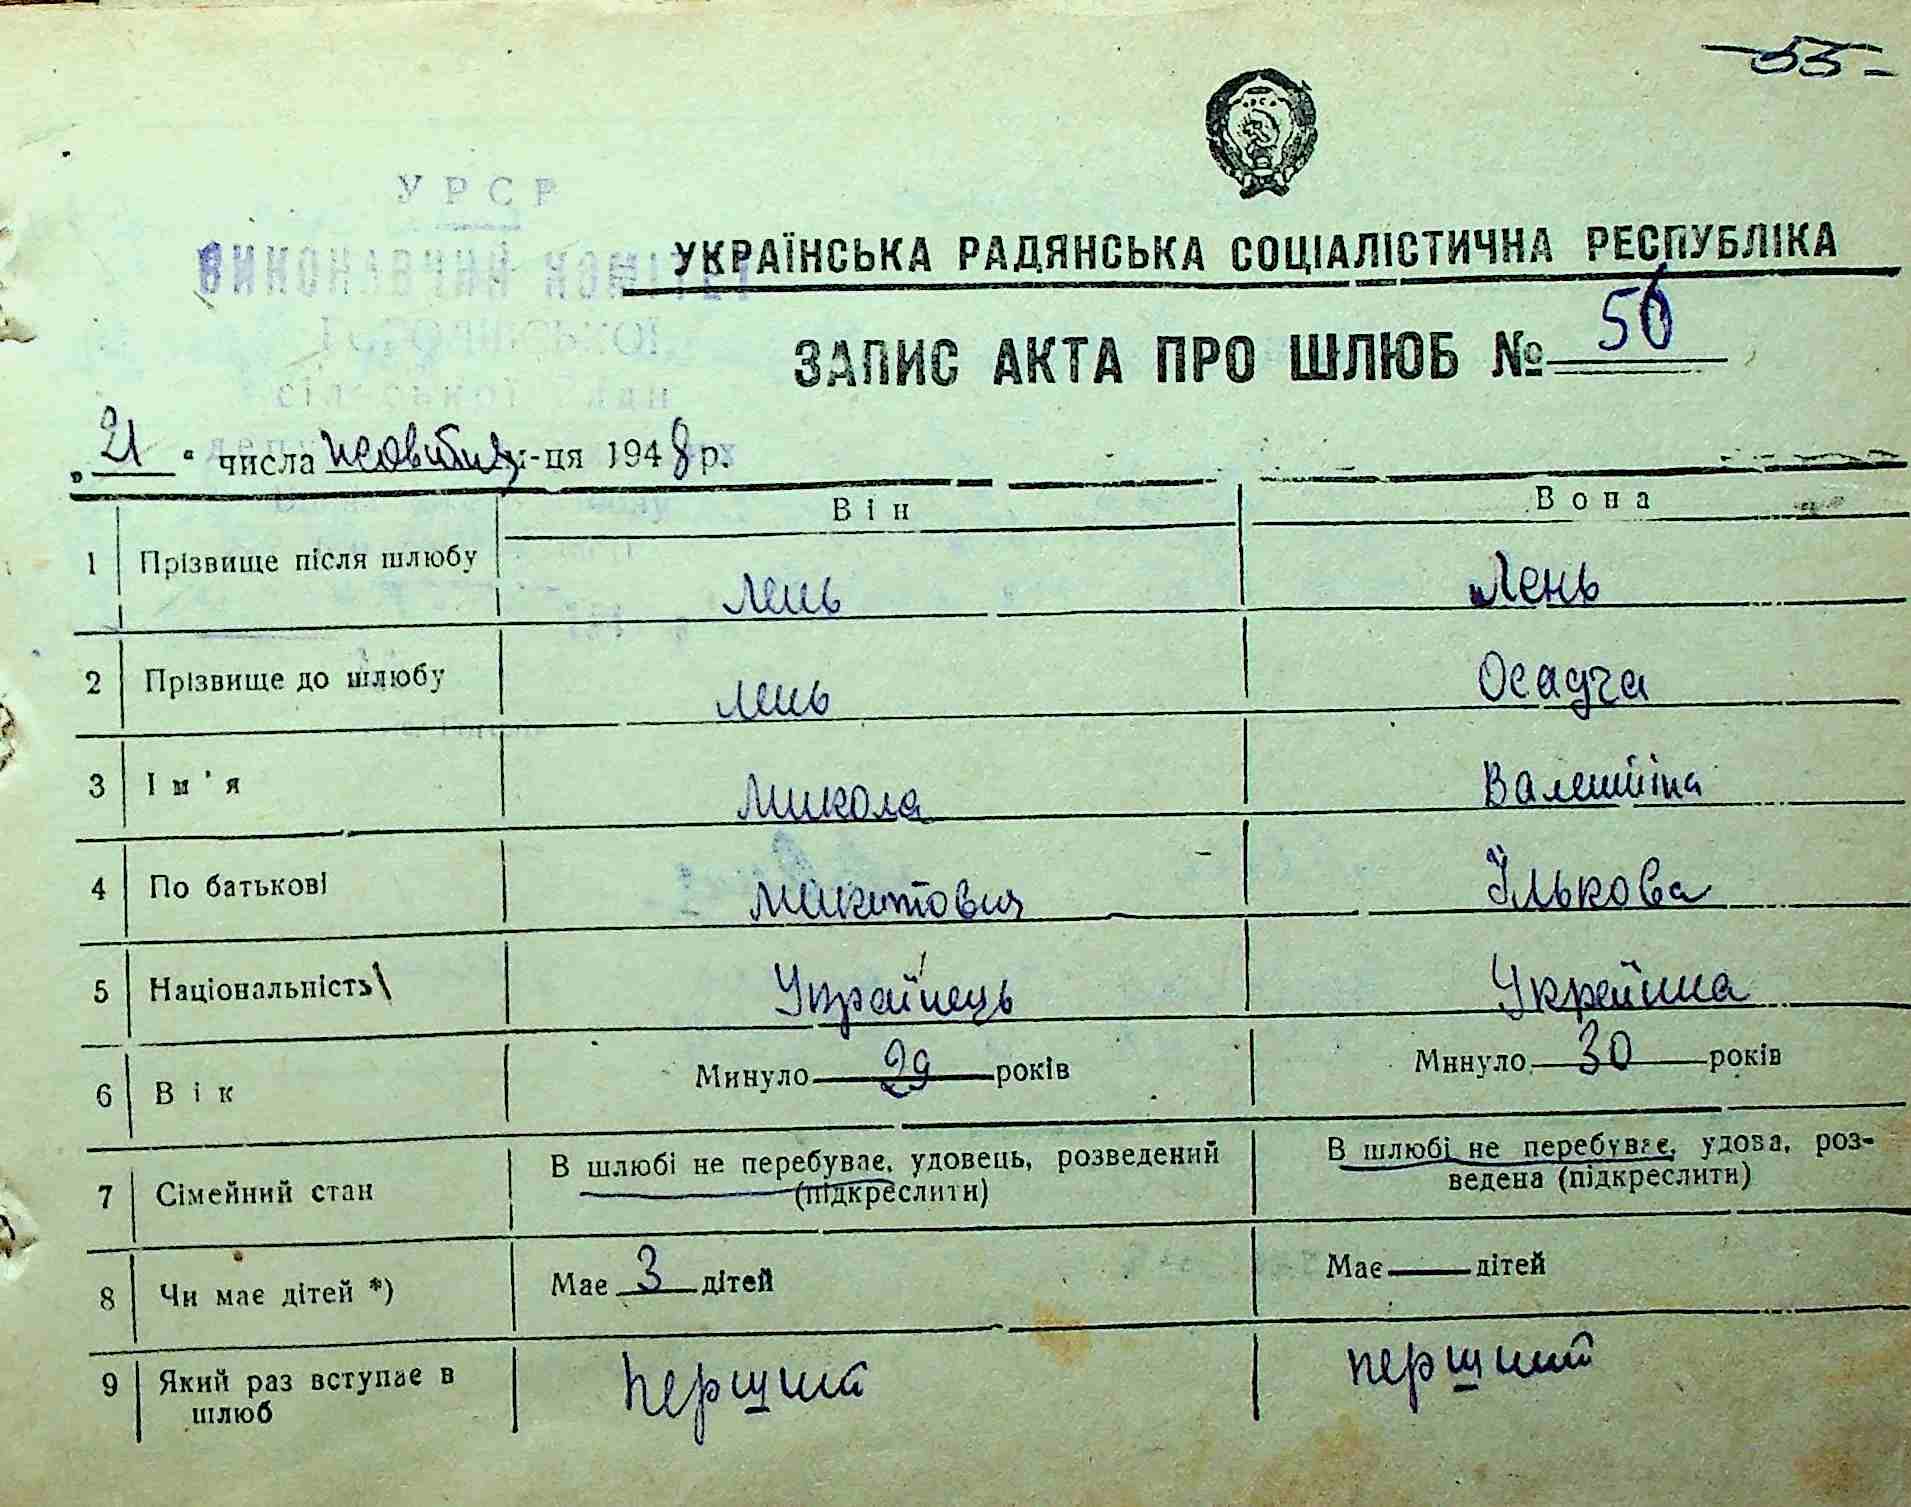 - 53 -
УРСР
ВИКОНАВЧИЙ КОМІТЕТ
УКРАЇНСЬКА РАДЯНСЬКА СОЦІАЛІСТИЧНА РЕСПУБЛІКА
ЗАПИС АКТА ПРО ШЛЮБ № 56
„21“ числа м-ця 1948 р.
Він Вона
1 Прізвище після шлюбу Лень Лень
2 Прізвище до шлюбу Лень Осадча
3 Ім'я Микола Валентіна
4 По батькові Микитович Ількова
5 Національність Українець Українка
6 Вік Минуло 29 років Минуло 30 років
7 Сімейний стан В шлюбі не перебуває, удовець, розведений (підкреслити) В шлюбі не перебуває, удова, роз-
ведена (підкреслити)
8 Чи має дітей *) Має 3 дітей Має — дітей
9 Який раз вступає в шлюб Перший перший